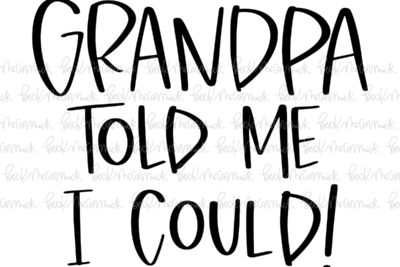 GRANDPA
TOLD ME
I COULD!